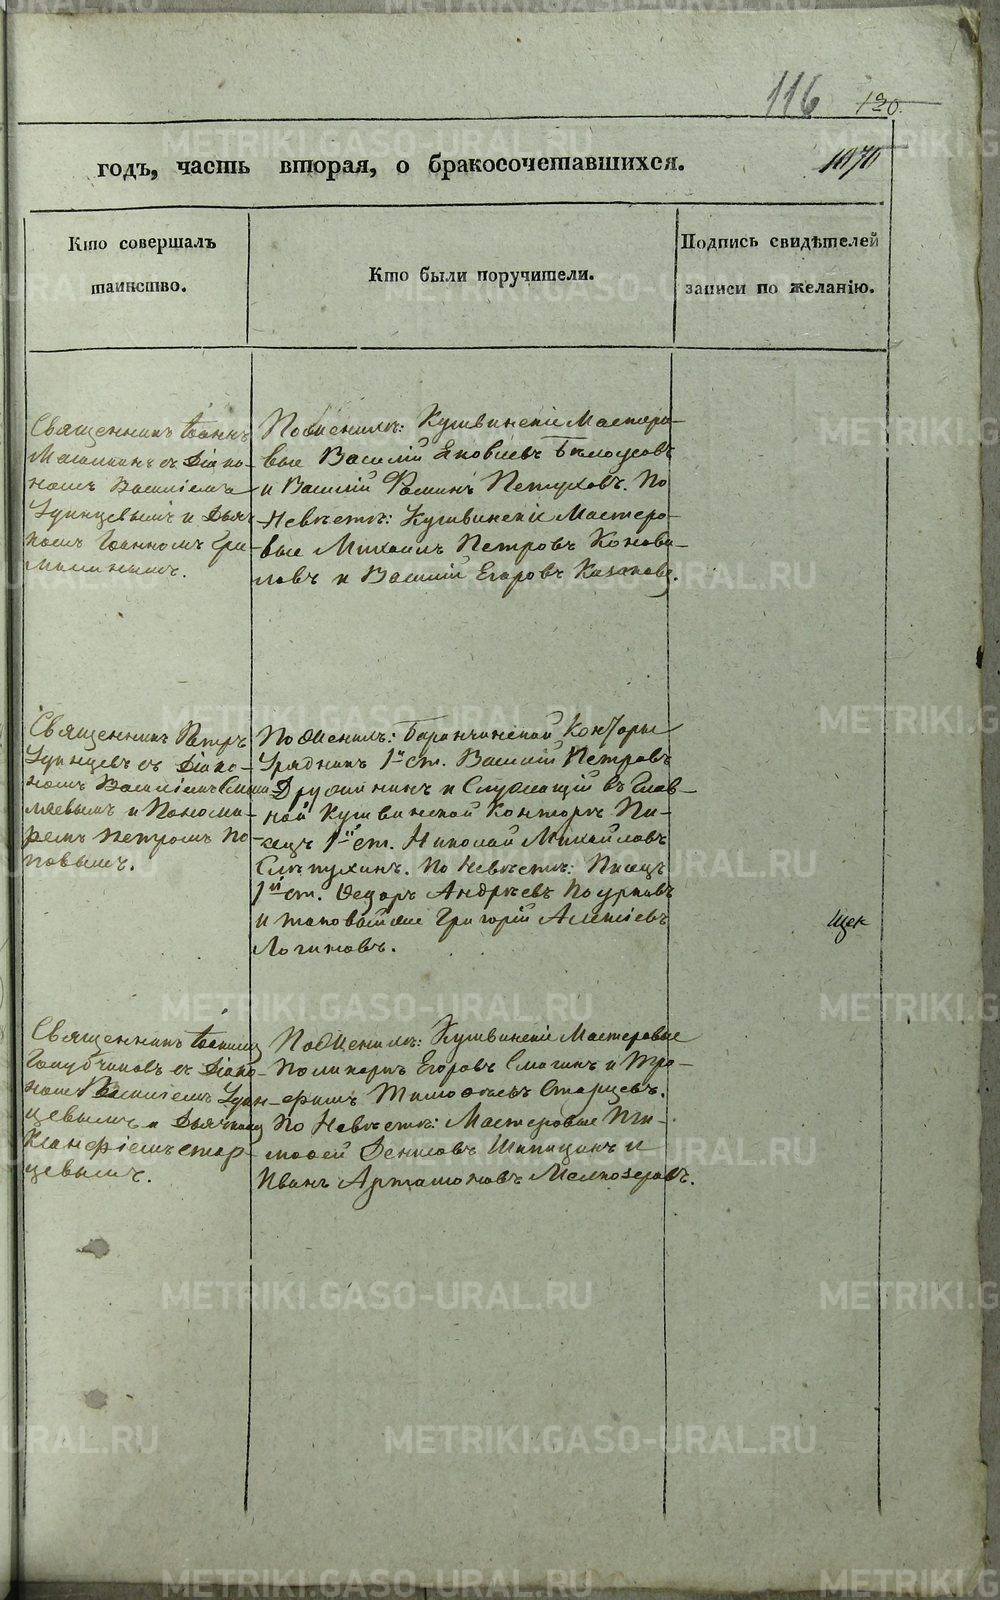 116 120.
годъ, часть вторая, о бракосочетавшихся. 1870
Кто совершалъ
таинство.
Кто были поручители.
Подпись свидѣтелей
записи по желанію.
Священникъ Іоаннъ
съ Діако-
номъ Василіемъ
Удинцевымъ и Дьяч-
комъ Іоанномъ
По Женихѣ: Кушвинскіе Мастеро-
вые Василій Яковлевъ Бѣлоусовъ
и Василій Ѳоминъ Петуховъ. По
Невѣстѣ: Кушвинскіе Мастеро-
вые Михаилъ Петровъ Конова-
ловъ и Василій Егоровъ Казаковъ.
Священникъ Петръ
Удинцевъ съ Діако-
номъ Василіемъ
и Понома-
ремъ Петромъ По-
повымъ.
По Женихѣ: Баранчинской Конторы
Урядникъ 1й ст. Василій Петровъ
Дружининъ и Служащій въ Глав-
ной Кушвинской Конторѣ Пи-
сецъ 1й ст. Николай Михайловъ
Слѣпухинъ. По Невѣстѣ: Писецъ
1й ст. Ѳедоръ Андреевъ
и таковой же Григорій Алексѣевъ
Логиновъ.
Священникъ
Голубчиковъ съ Діако-
номъ Василіемъ Удин-
цевымъ и Дьячкомъ
Ксанфіемъ Стар-
цевымъ.
По Женихѣ: Кушвинскіе Мастеровые
Поликарпъ Егоровъ Смагинъ и Тро-
фимъ Тимофеевъ Старцевъ.
По Невѣстѣ: Мастеровые Ти-
мофей Денисовъ Шипицинъ и
Иванъ Артамоновъ Мелкозеровъ.
METRIKI.GASO-URAL.RU